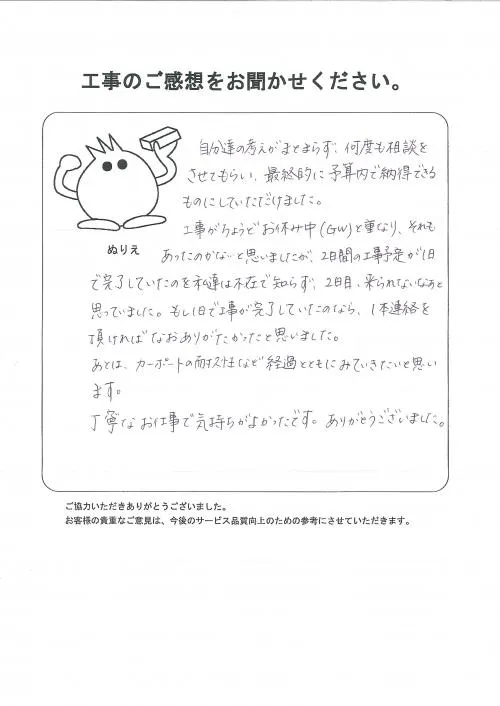 工事のご感想をお聞かせください。
ぬりえ
自分達の考えがまとまらず、何度も相談を
させてもらい、最終的に予算内で納得できる
ものにしていただけました。
工事がちょうどお休み中(GW)と重なり、それも
あったのかな?と思いましたが、2日間の工事予定が1日
で完了していたのを私達は不在で知らず、2日目、来られないなぁと
思っていました。もし1日で工事が完了していたのなら、1本連絡を
頂ければなおありがたかったと思いました。
あとは、カーポートの耐久性など経過とともにみていきたいと思い
ます。
丁寧なお仕事で気持ちがよかったです。ありがとうございました。
ご協力いただきありがとうございました。
お客様の貴重なご意見は、今後のサービス品質向上のための参考にさせていただきます。